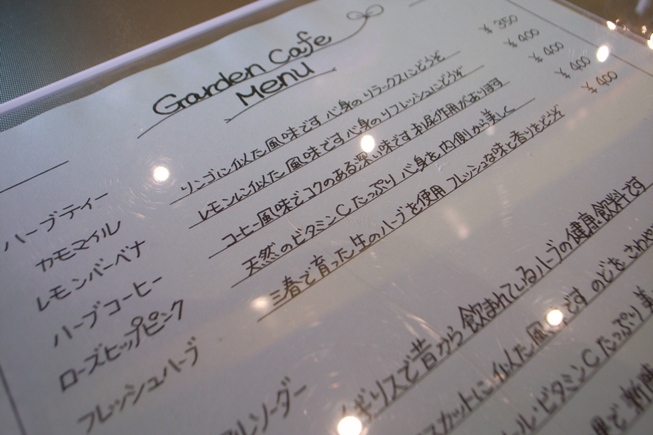 Garden Cafe
Menu
ハーブティー
カモマイル リンゴに似た風味です 心身のリラックスにどうぞ ¥350
レモンバーベナ レモンに似た風味です 心身のリフレッシュにどうぞ ¥400
ハーブコーヒー コーヒー風味でコクのある深い味です 利尿作用があります ¥400
ローズヒップピンク 天然のビタミンCたっぷり 心身を内側から美しく ¥400
フレッシュハーブ 三春で育った生のハーブを使用 フレッシュな味と香りをどうぞ ¥400
ギリスで昔から飲まれているハーブの健康飲料です
スカットに似た風味です のどをさわや
ール・ビタミンCたっぷり 美